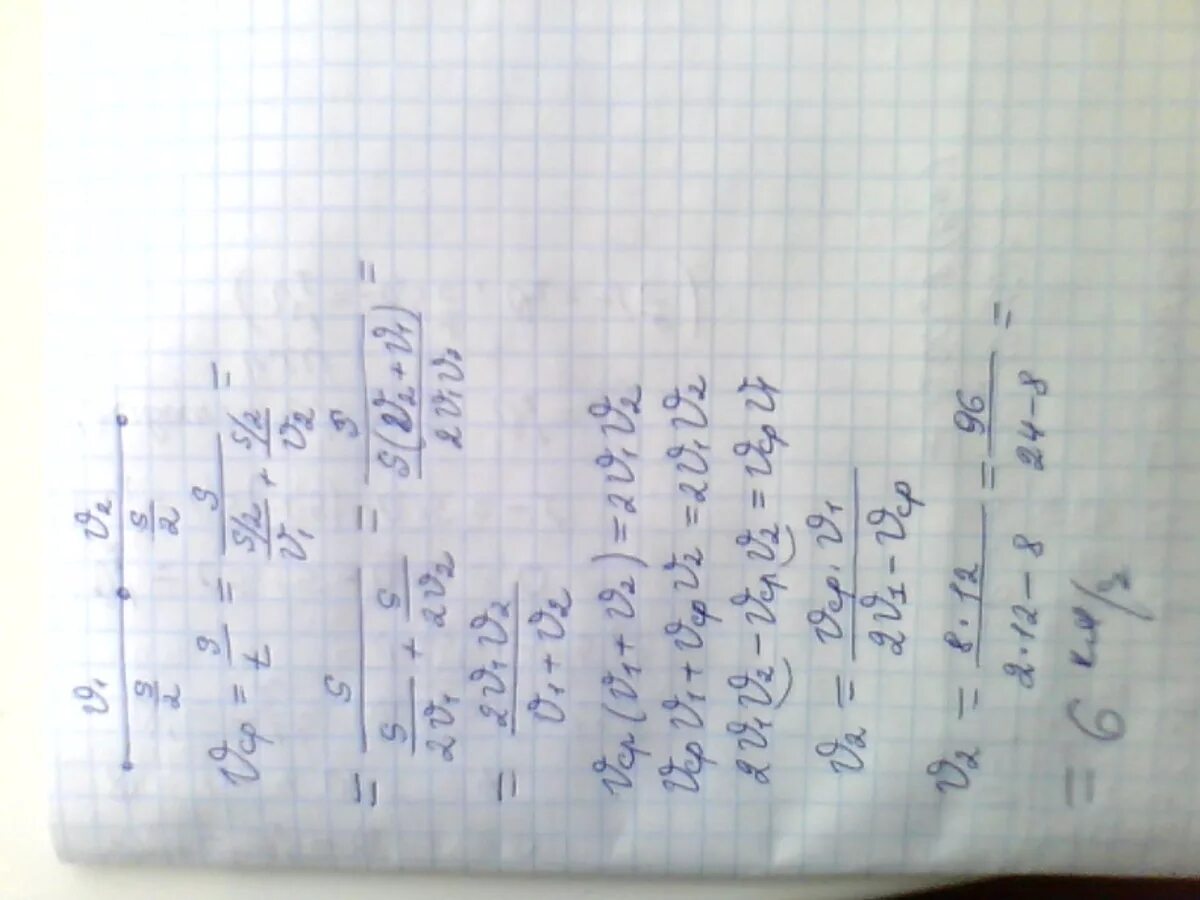 v₁ v₂
S/2 S/2
vср = S/t = S/((S/2)/v₁ + (S/2)/v₂) =
= S/(S/2v₁ + S/2v₂) = S/(S(v₂+v₁)/2v₁v₂) =
= 2v₁v₂/(v₁+v₂)
vср(v₁+v₂)=2v₁v₂
vср v₁ + vср v₂ = 2v₁v₂
2v₁v₂ - vср v₂ = vср v₁
v₂ = vср·v₁/(2v₁ - vср)
v₂ = 8·12/(2·12-8) = 96/(24-8) =
= 6 км/ч